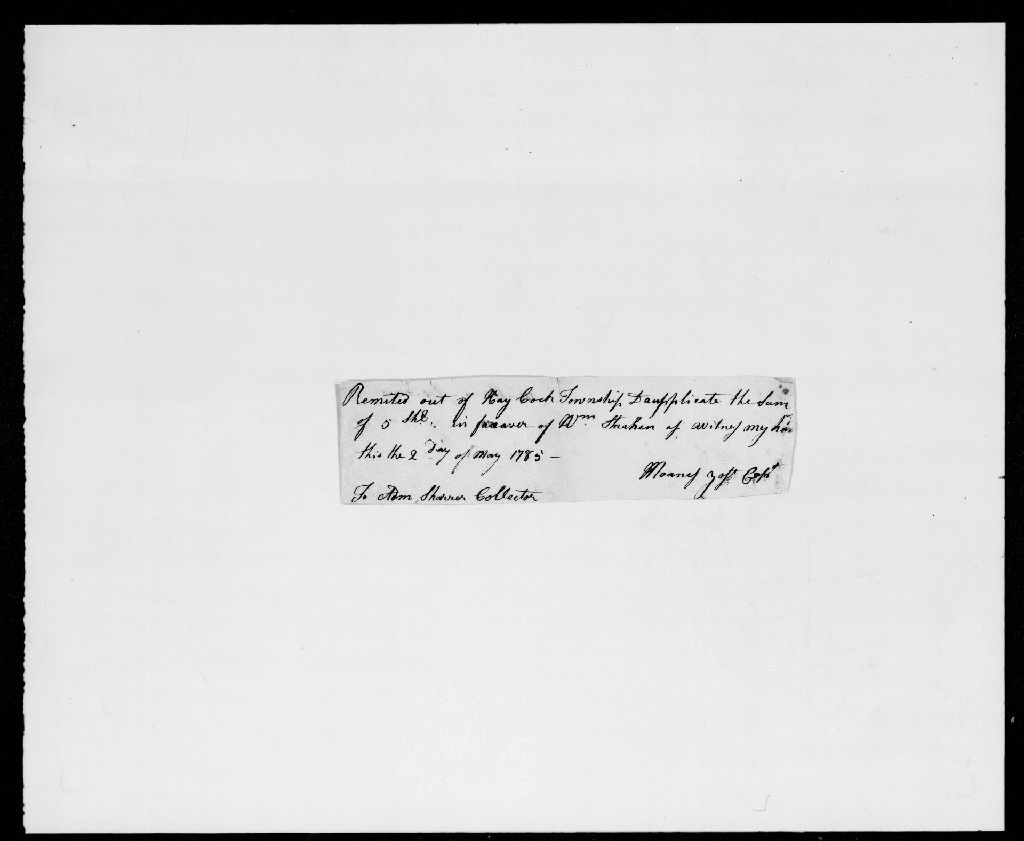 Remited out of Hay Cock Township Daupplicate the Sum
of 5 Shs. in favaver of Wm Strahen as Witness my han
this the 2 Day of May 1785 —
Manes Yost Capt
To Adm Sharrer Collector